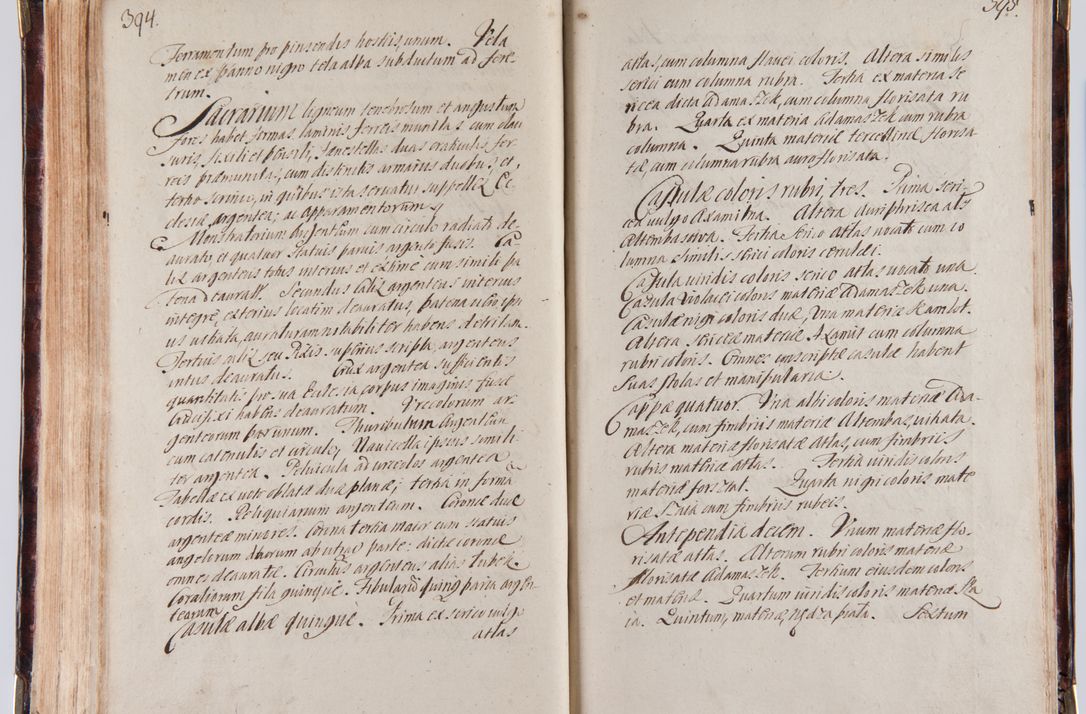 394.
Ferramentum pro pinsendis hostiis unum. Vela
men ex panno nigro tela alba subductum ad fere
trum.
Sacrarium ligneum tenebrosum et angustum
fores habet firmas laminis ferreis munitas cum clau
suris fixili et pensili, fenestellas duas craticulis fer
reis præmunitas, cum distinctis armariis duobus, et
tertio scrinio, in quibus ista servatur suppellex Ec
clesiæ argentea, ac apparamentorum
Monstratorium argenteum cum circulo radiato de
aurato, et quatuor statuis parvis argento fusis. Ca
lix argenteus totus interius et extime cum simili pa
tena deauratus. Secundus calix argenteus interius
integre, exterius locatim deauratus, patena vero ipsi
us attrita, auraturam notabiliter habens detritam.
Tertius calix seu Pixis superius scripta argenteus
intus deauratus. Crux argentea sufficientis
quantitatis pro ua Ecclesia corpus imaginis fusæ
Crucifixi habens deauratum. Urceolorum ar
genteorum par unum. Thuribulum Argenteum
cum catenulis et circulo, Navicella ipsius simili
ter argentea. Pelvicula ad urceolos argentea
Tabellæ ex voto oblatæ duæ planæ, tertia in forma
cordis. Reliquiarium argenteum. Coronæ duæ
argenteæ minores. Corona tertia maior cum statuis
angelorum duorum ab utraq parte: dictæ coronæ
omnes deauratæ. Circulus argenteus alias
Coraliorum fila quinque. Fibularum quinq paria argen
tearum
Casulæ albæ quinque. Prima ex serico vulgo
atlas
395.
atlas, cum columna flavei coloris. Altera similis
serici cum columna rubra. Tertia ex materia se
ricea dicta adamaszek, cum columna florisata ru
bra. Quarta ex materia Adamaszek cum rubra
columna. Quinta materiæ tercellinæ florisa
tæ, cum columna rubra auro florisata.
Casulæ coloris rubri, tres. Prima seri
cea vulgo Axamitna. Altera auriphrisea als
Altembasowa. Tertia serico atlas vocato cum co
lumna simili serici coloris cerulei.
Casula viridis coloris serico atlas vocato una.
Casula violacei coloris materiæ Adamaszek una.
Casulæ nigri coloris duæ, Una materiæ kamlot.
Altera sericeæ materiæ Axamit cum columna
rubri coloris. Omnes conscriptæ casulæ habent
suas stolas et manipularia.
Cappæ quatuor. Una albi coloris materiæ Ada
maszek, cum fimbriis materiæ Altembas, attrita.
Altera materiæ florisatæ Atlas, cum fimbriis
rubris materiæ atlas. Tertia viridis coloris
materiæ forsztat. Quarta nigri coloris mate
riæ Szaia cum fimbriis rubeis.
Antependia decem. Unum materiæ flo
risatæ atlas. Alterum rubri coloris materiæ
florisatæ Adamaszek. Tertium eiusdem coloris
et materiæ. Quartum viridis coloris materiæ Sza
ia. Quintum, materiæ, Sextum